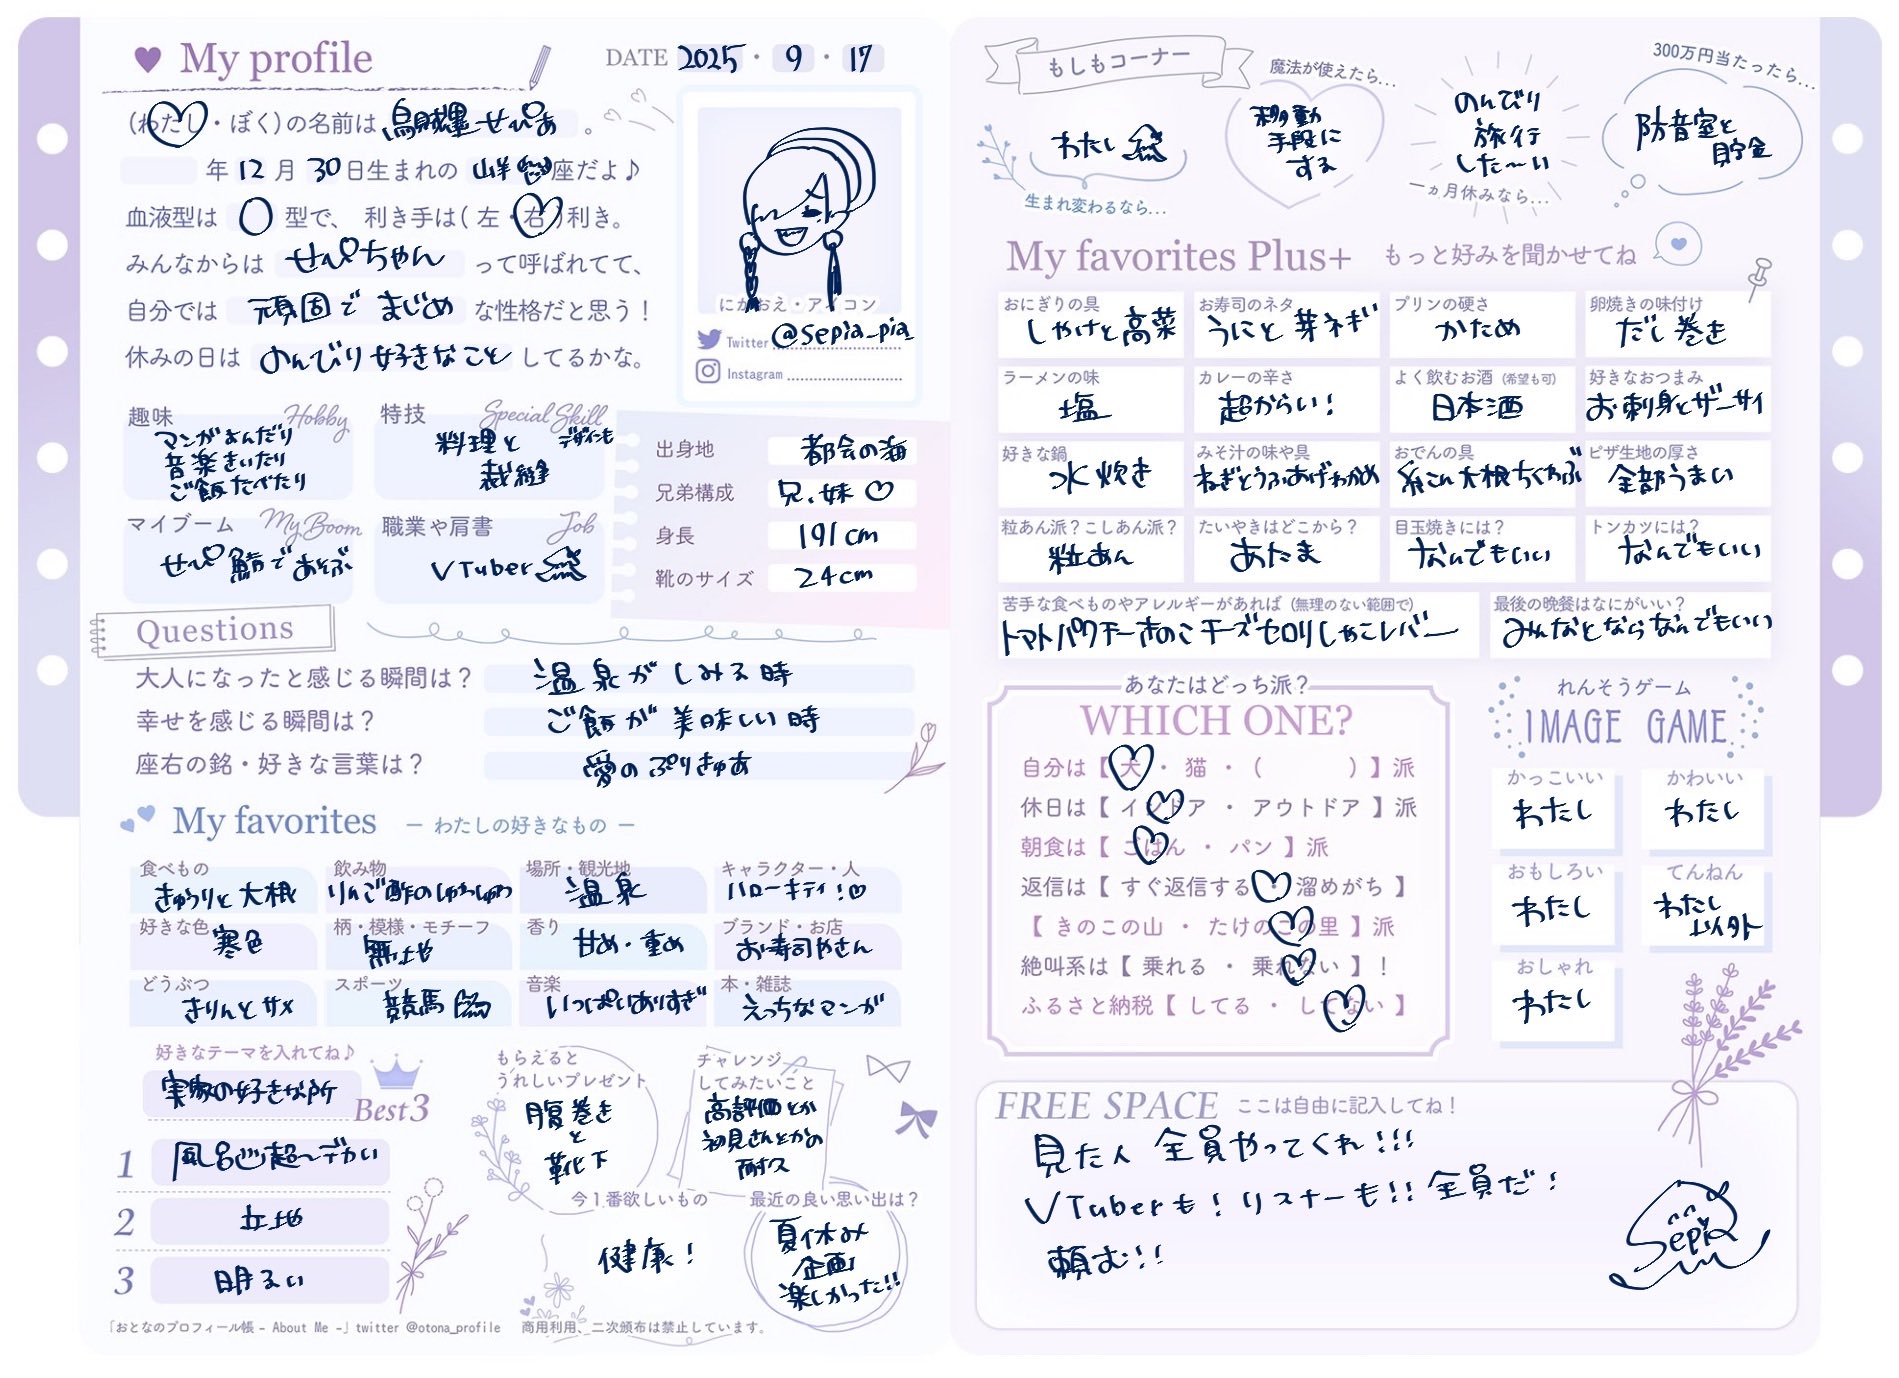 My profile
DATE 2025・9・17
(わたし・ぼく)の名前は 烏賊墨せぴあ 。
年 12 月 30 日生まれの 山羊座だよ♪
血液型は O 型で、 利き手は( 左・右 )利き。
みんなからは せぴちゃん って呼ばれてて、
自分では 頑固でまじめ な性格だと思う！
休みの日は のんびり好きなこと してるかな。
にがおえ・アイコン
Twitter @sepia_pia_
Instagram
趣味 Hobby
マンガよんだり
音楽きいたり
ご飯たべたり
特技 Special Skill
料理と デザインも
裁縫
マイブーム My Boom
せぴ鯖であそぶ
職業や肩書 Job
VTuber
出身地 都会の海
兄弟構成 兄、妹♡
身長 191cm
靴のサイズ 24cm
Questions
大人になったと感じる瞬間は？ 温泉がしみる時
幸せを感じる瞬間は？ ご飯が美味しい時
座右の銘・好きな言葉は？ 愛のぷりきゅあ
My favorites ー わたしの好きなもの ー
食べもの
きゅうりと大根
飲み物
りんご酢のしゅわしゅわ
場所・観光地
温泉
キャラクター・人
ハローキティ！♡
好きな色
寒色
柄・模様・モチーフ
無地
香り
甘め・重め
ブランド・お店
お寿司やさん
どうぶつ
きりんとサメ
スポーツ
競馬
音楽
いっぱいありすぎ
本・雑誌
えっちなマンガ
好きなテーマを入れてね♪
実家の好きな所
Best3
1 風呂が超〜デカい
2 立地
3 明るい
もらえると
うれしいプレゼント
腹巻き
と
靴下
チャレンジ
してみたいこと
高評価とか
初見さんとかの
耐久
今1番欲しいもの
健康！
最近の良い思い出は？
夏休み
企画
楽しかった!!
「おとなのプロフィール帳 - About Me -」twitter @otona_profile 商用利用、二次頒布は禁止しています。
もしもコーナー
わたし
生まれ変わるなら...
魔法が使えたら...
移動
手段に
する
のんびり
旅行
した〜い
一ヵ月休みなら...
300万円当たったら...
防音室と
貯金
My favorites Plus+ もっと好みを聞かせてね
おにぎりの具
しゃけと高菜
お寿司のネタ
うにと芽ネギ
プリンの硬さ
かため
卵焼きの味付け
だし巻き
ラーメンの味
塩
カレーの辛さ
超からい！
よく飲むお酒 (希望も可)
日本酒
好きなおつまみ
お刺身とザーサイ
好きな鍋
水炊き
みそ汁の味や具
ねぎとうふあげわかめ
おでんの具
糸こん大根ちくわぶ
ピザ生地の厚さ
全部うまい
粒あん派？こしあん派？
粒あん
たいやきはどこから？
あたま
目玉焼きには？
なんでもいい
トンカツには？
なんでもいい
苦手な食べものやアレルギーがあれば (無理のない範囲で)
トマトパクチーきのこチーズセロリしゃこレバー
最後の晩餐はなにがいい？
みんなとならなんでもいい
あなたはどっち派？
WHICH ONE?
自分は【 犬 ・ 猫 ・ ( ) 】派
休日は【 インドア ・ アウトドア 】派
朝食は【 ごはん ・ パン 】派
返信は【 すぐ返信する ・ 溜めがち 】
【 きのこの山 ・ たけのこの里 】派
絶叫系は【 乗れる ・ 乗れない 】！
ふるさと納税【 してる ・ してない 】
れんそうゲーム
IMAGE GAME
かっこいい
わたし
かわいい
わたし
おもしろい
わたし
てんねん
わたし
以外
おしゃれ
わたし
FREE SPACE ここは自由に記入してね！
見た人 全員やってくれ!!!
VTuberも！リスナーも!! 全員だ！
頼む!!
Sepia